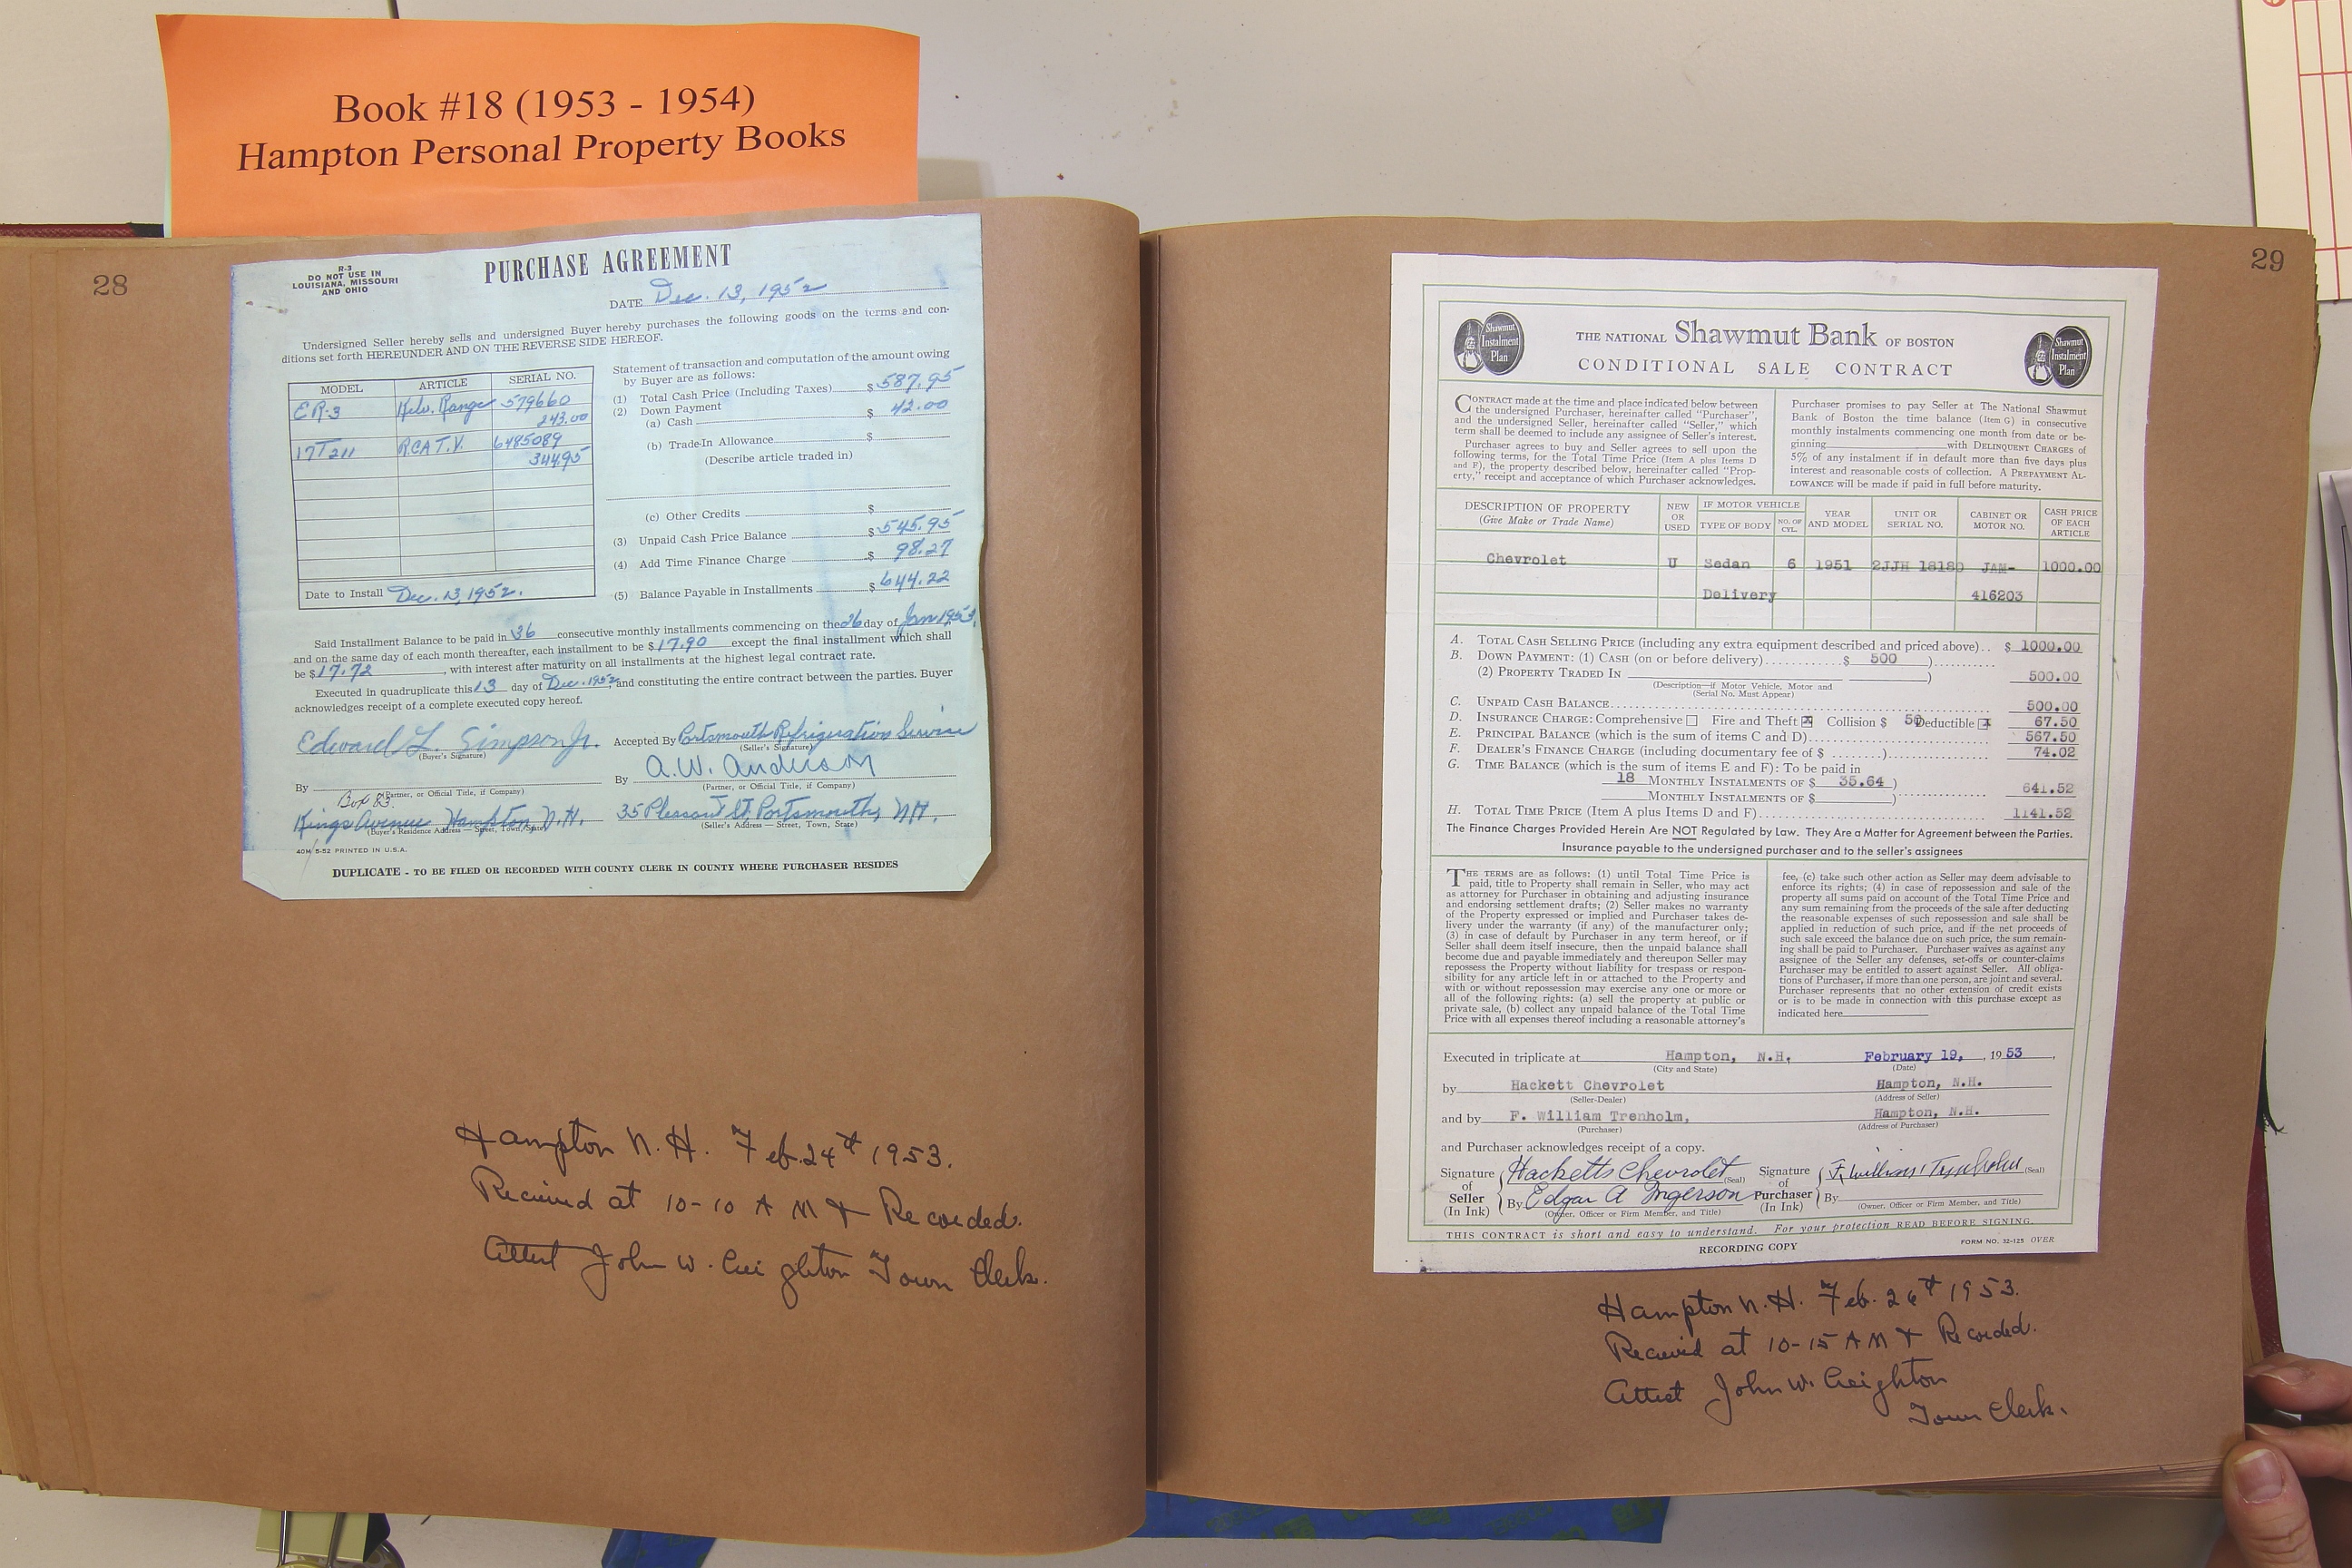 Book #18 (1953 - 1954)
Hampton Personal Property Books
28
R-3
DO NOT USE IN
LOUISIANA, MISSOURI
AND OHIO
PURCHASE AGREEMENT
DATE Dec. 13, 1952
Undersigned Seller hereby sells and undersigned Buyer hereby purchases the following goods on the terms and con-
ditions set forth HEREUNDER AND ON THE REVERSE SIDE HEREOF.
MODEL ARTICLE SERIAL NO.
ER-3 Kelv. Range 579660
243.00
17T211 RCA T.V. 6485089
344.95
Date to Install Dec. 13, 1952.
Statement of transaction and computation of the amount owing
by Buyer are as follows:
(1) Total Cash Price (Including Taxes) $ 587.95
(2) Down Payment
(a) Cash $ 42.00
(b) Trade-In Allowance $
(Describe article traded in)
(c) Other Credits $
(3) Unpaid Cash Price Balance $ 545.95
(4) Add Time Finance Charge $ 98.27
(5) Balance Payable in Installments $ 644.22
Said Installment Balance to be paid in 36 consecutive monthly installments commencing on the 26 day of Jan 1953,
and on the same day of each month thereafter, each installment to be $ 17.90 except the final installment which shall
be $ 17.72, with interest after maturity on all installments at the highest legal contract rate.
Executed in quadruplicate this 13 day of Dec. 1952, and constituting the entire contract between the parties. Buyer
acknowledges receipt of a complete executed copy hereof.
Edward L. Simpson Jr. Accepted By Portsmouth Refrigeration Service
(Buyer's Signature) (Seller's Signature)
By By A.W. Anderson
(Partner, or Official Title, if Company) (Partner, or Official Title, if Company)
Box 83.
Kings Avenue Hampton, N.H. 35 Pleasant St, Portsmouth, NH.
(Buyer's Residence Address — Street, Town, State) (Seller's Address — Street, Town, State)
40M 5-52 PRINTED IN U.S.A.
DUPLICATE - TO BE FILED OR RECORDED WITH COUNTY CLERK IN COUNTY WHERE PURCHASER RESIDES
Hampton N. H. Feb. 24th 1953.
Recieved at 10-10 A M & Recorded.
Attest John W. Creighton Town Clerk.
29
Shawmut Instalment Plan
THE NATIONAL Shawmut Bank OF BOSTON
CONDITIONAL SALE CONTRACT
Shawmut Instalment Plan
CONTRACT made at the time and place indicated below between
the undersigned Purchaser, hereinafter called "Purchaser",
and the undersigned Seller, hereinafter called "Seller," which
term shall be deemed to include any assignee of Seller's interest.
Purchaser agrees to buy and Seller agrees to sell upon the
following terms, for the Total Time Price (Item A plus Items D
and F), the property described below, hereinafter called "Prop-
erty," receipt and acceptance of which Purchaser acknowledges.
Purchaser promises to pay Seller at The National Shawmut
Bank of Boston the time balance (Item G) in consecutive
monthly instalments commencing one month from date or be-
ginning with DELINQUENT CHARGES of
5% of any instalment if in default more than five days plus
interest and reasonable costs of collection. A PREPAYMENT AL-
LOWANCE will be made if paid in full before maturity.
DESCRIPTION OF PROPERTY
(Give Make or Trade Name)
NEW OR USED
IF MOTOR VEHICLE
TYPE OF BODY
NO. OF CYL.
YEAR AND MODEL
UNIT OR SERIAL NO.
CABINET OR MOTOR NO.
CASH PRICE OF EACH ARTICLE
Chevrolet U Sedan 6 1951 2JJH 18180 JAM- 1000.00
Delivery 416203
A. TOTAL CASH SELLING PRICE (including any extra equipment described and priced above).. $ 1000.00
B. DOWN PAYMENT: (1) CASH (on or before delivery) $ 500 )
(2) PROPERTY TRADED IN ) 500.00
(Description—if Motor Vehicle, Motor and
Serial No. Must Appear)
C. UNPAID CASH BALANCE 500.00
D. INSURANCE CHARGE: Comprehensive Fire and Theft X Collision $ 50 Deductible X 67.50
E. PRINCIPAL BALANCE (which is the sum of items C and D) 567.50
F. DEALER'S FINANCE CHARGE (including documentary fee of $ ) 74.02
G. TIME BALANCE (which is the sum of items E and F): To be paid in
18 MONTHLY INSTALMENTS OF $ 35.64 )
MONTHLY INSTALMENTS OF $ ) 641.52
H. TOTAL TIME PRICE (Item A plus Items D and F) 1141.52
The Finance Charges Provided Herein Are NOT Regulated by Law. They Are a Matter for Agreement between the Parties.
Insurance payable to the undersigned purchaser and to the seller's assignees
THE TERMS are as follows: (1) until Total Time Price is
paid, title to Property shall remain in Seller, who may act
as attorney for Purchaser in obtaining and adjusting insurance
and endorsing settlement drafts; (2) Seller makes no warranty
of the Property expressed or implied and Purchaser takes de-
livery under the warranty (if any) of the manufacturer only;
(3) in case of default by Purchaser in any term hereof, or if
Seller shall deem itself insecure, then the unpaid balance shall
become due and payable immediately and thereupon Seller may
repossess the Property without liability for trespass or respon-
sibility for any article left in or attached to the Property and
with or without repossession may exercise any one or more or
all of the following rights: (a) sell the property at public or
private sale, (b) collect any unpaid balance of the Total Time
Price with all expenses thereof including a reasonable attorney's
fee, (c) take such other action as Seller may deem advisable to
enforce its rights; (4) in case of repossession and sale of the
property all sums paid on account of the Total Time Price and
any sum remaining from the proceeds of the sale after deducting
the reasonable expenses of such repossession and sale shall be
applied in reduction of such price, and if the net proceeds of
such sale exceed the balance due on such price, the sum remain-
ing shall be paid to Purchaser. Purchaser waives as against any
assignee of the Seller any defenses, set-offs or counter-claims
Purchaser may be entitled to assert against Seller. All obliga-
tions of Purchaser, if more than one person, are joint and several.
Purchaser represents that no other extension of credit exists
or is to be made in connection with this purchase except as
indicated here
Executed in triplicate at Hampton, N.H, February 19, , 19 53 ,
(City and State) (Date)
by Hackett Chevrolet Hampton, N.H.
(Seller-Dealer) (Address of Seller)
and by F. William Trenholm, Hampton, N.H.
(Purchaser) (Address of Purchaser)
and Purchaser acknowledges receipt of a copy.
Signature of Seller (In Ink) Hacketts Chevrolet (Seal) Signature of Purchaser (In Ink) F. William Trenholm (Seal)
By Edgar A Ingerson By
(Owner, Officer or Firm Member, and Title) (Owner, Officer or Firm Member, and Title)
THIS CONTRACT is short and easy to understand. For your protection READ BEFORE SIGNING.
RECORDING COPY
FORM NO. 32-125 OVER
Hampton N. H. Feb. 26th 1953.
Recieved at 10-15 A M & Recorded.
Attest John W. Creighton
Town Clerk.